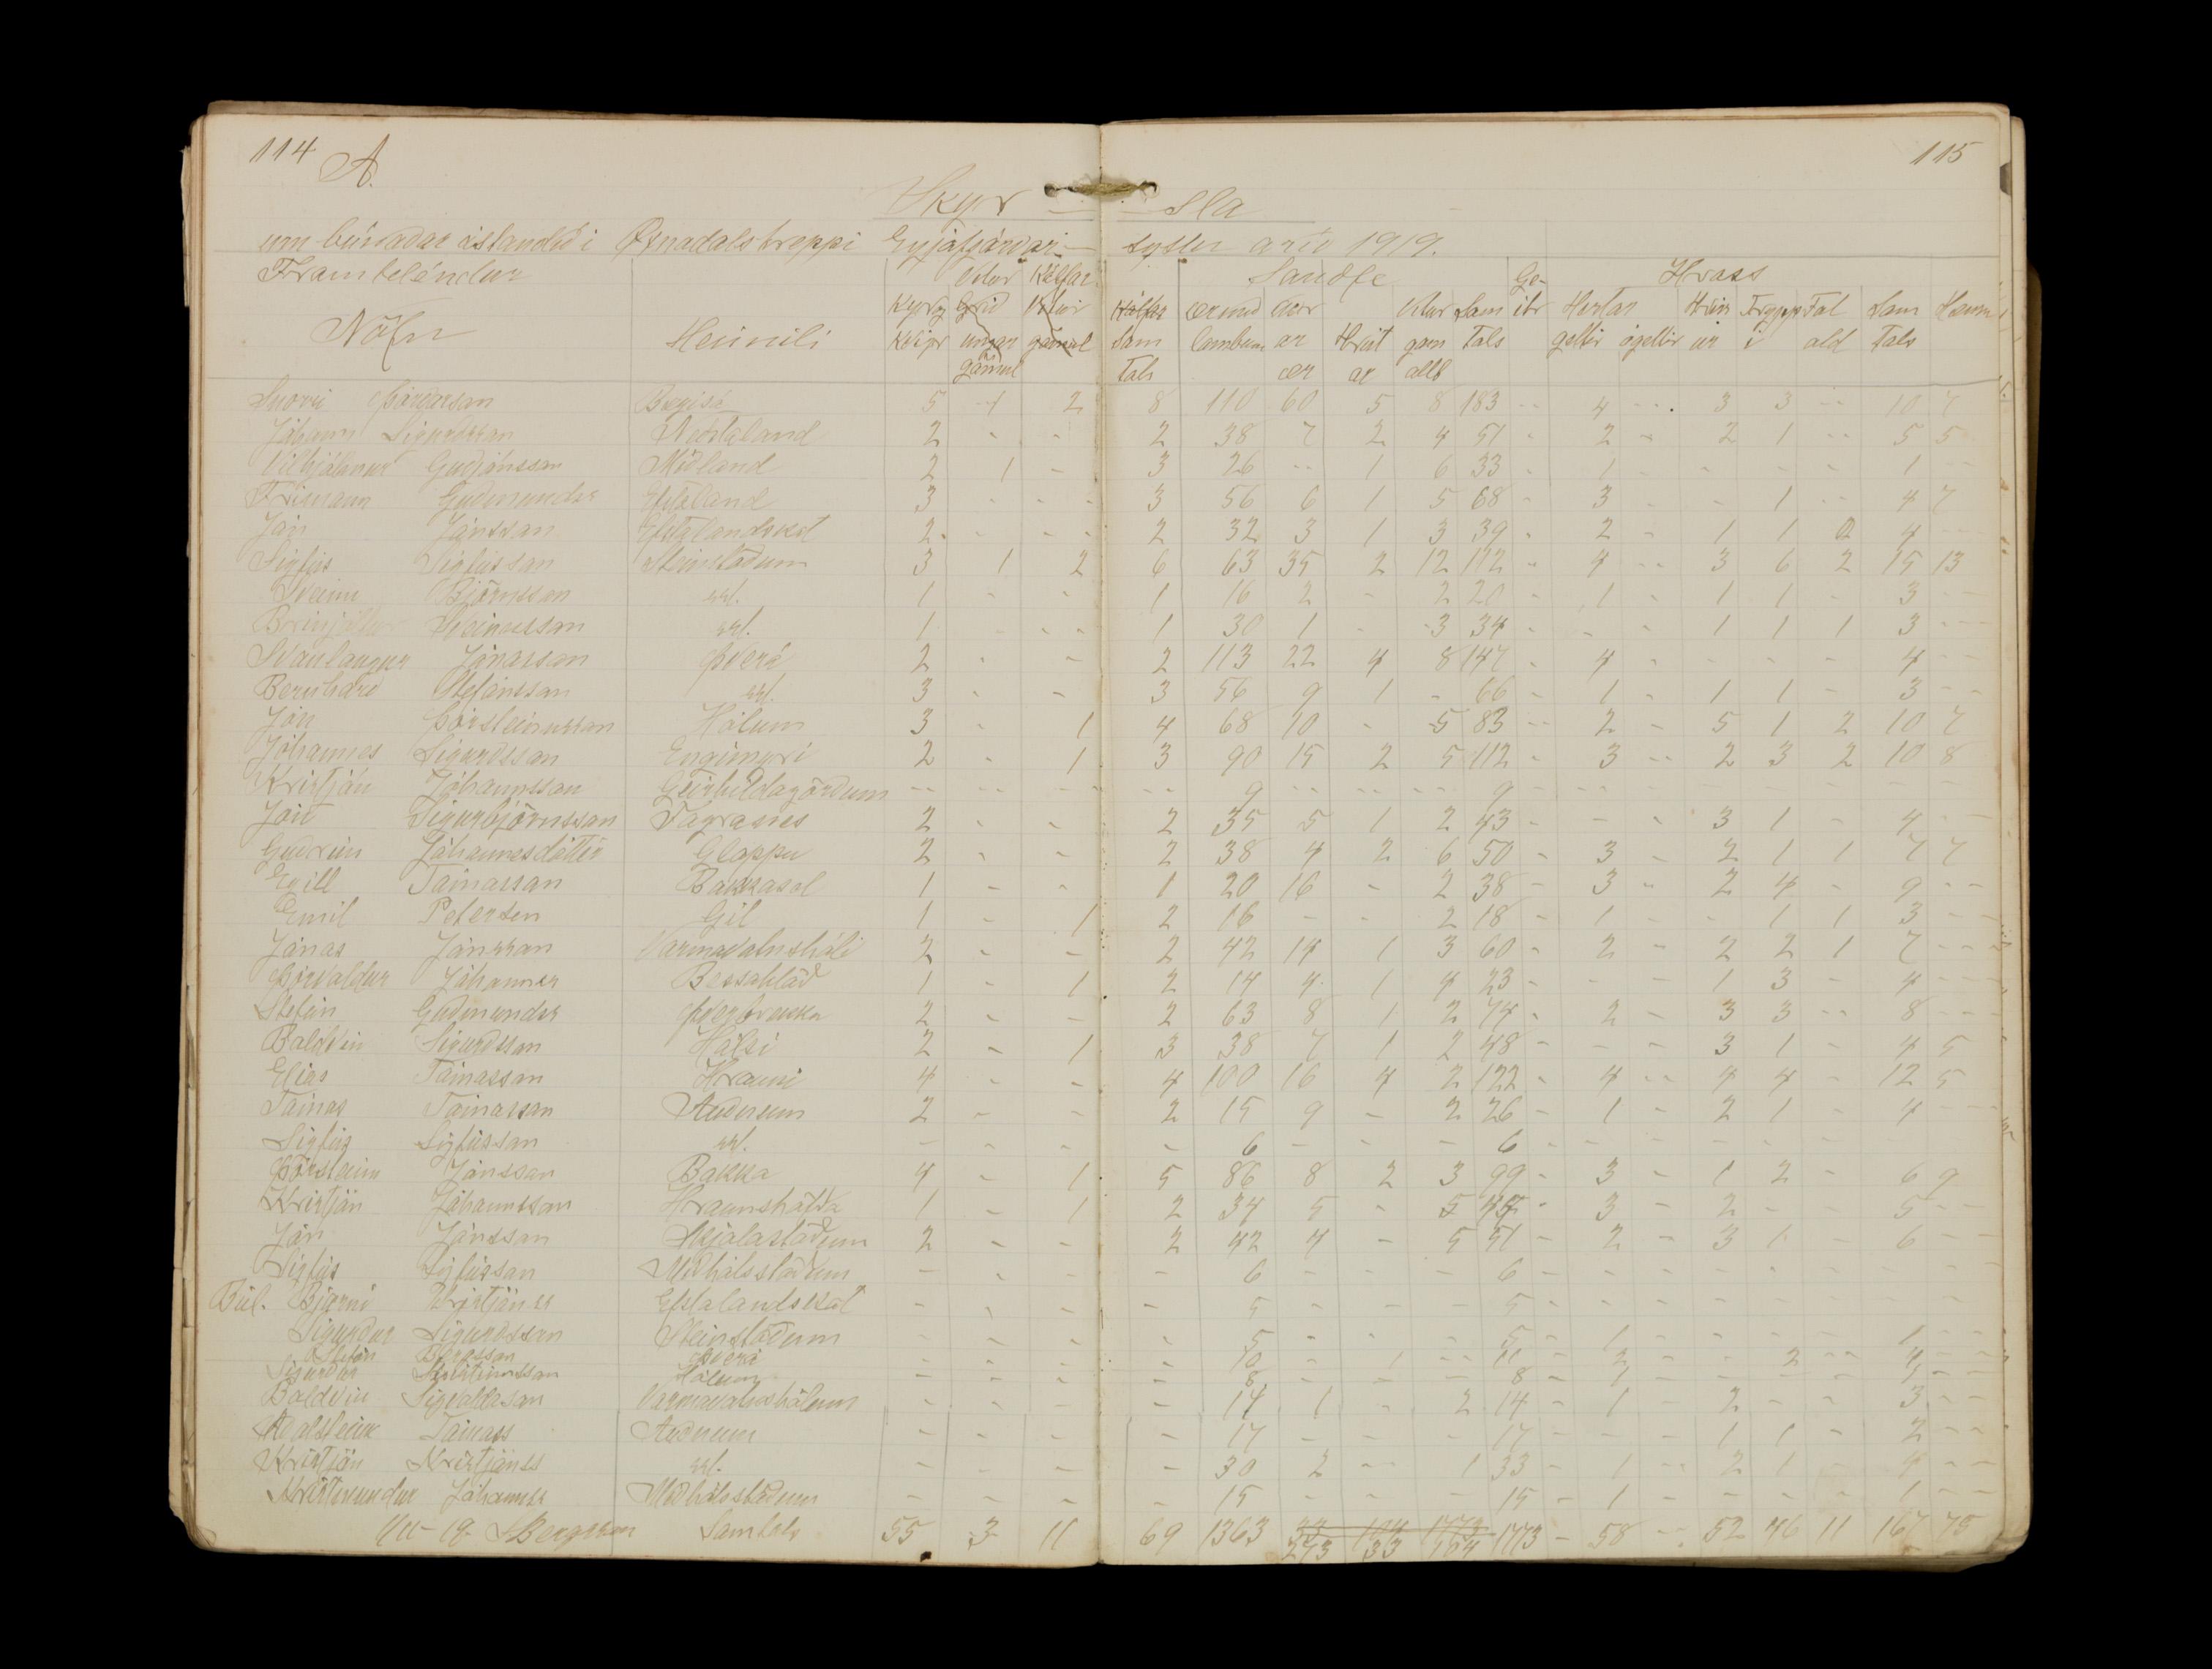 114 A. 115
Skyr - sla
um búnadar astandid i Øxnadalshreppi Eyjafjardar- syslu arid 1919.
Framteléndur Vetur Kálfar Saudfe Ge- Hross
Kyr og Grid Vetur Kálfar ær med ær Vetur Sam itr Hestar Hris Trypp Fol Sam Hæns
Nöfn Heimili Kvigr ungar gamul Sam lambum ar Hrút gam Tals geltir ógeltir ur i ald Tals
gamul Tals ær ar all
Snorri Þórdarson Bægisá 5 1 2 8 110 60 5 8 183 - 4 - 3 3 - 10 7
Jóhann Sigurdsson Nedstaland 2 - - 2 38 7 2 4 51 - 2 - 2 1 - 5 5
Vilhjálmur Gudjónsson Midland 2 1 - 3 26 - 1 6 33 - 1 - - - - 1 -
Frimann Gudmundss Efstaland 3 - - 3 56 6 1 5 68 - 3 - - 1 - 4 7
Jón Jónsson Efstalandskot 2 - - 2 32 3 1 3 39 - 2 - 1 1 0 4 -
Sigfús Sigfússon Steinstödum 3 1 2 6 63 35 2 12 112 - 4 - 3 6 2 15 13
Steinn Björnsson sst. 1 - - 1 16 2 - 2 20 - 1 - 1 1 - 3 -
Brinjólfur Sveinsson sst. 1 - - 1 30 1 - 3 34 - - - 1 1 1 3 -
Svanlaugur Jónasson Þverá 2 - - 2 113 22 4 8 147 - 4 - - - - 4 -
Bernhard Stefánsson sst. 3 - - 3 56 9 1 - 66 - 1 - 1 1 - 3 -
Jón Þorsteinnsson Hólum 3 - 1 4 68 10 - 5 83 - 2 - 5 1 2 10 7
Jóhannes Sigurdsson Engimyri 2 - 1 3 90 15 2 5 112 - 3 - 2 3 2 10 8
Kristján Jóhannsson Geirhildagördum - - - - 9 - - - 9 - - - - - - - -
Jón Sigurbjörnsson Fagranes 2 - - 2 35 5 1 2 43 - - - 3 1 - 4 -
Gudrún Jóhannesdóttir Gloppu 2 - - 2 38 4 2 6 50 - 3 - 2 1 1 7 7
Egill Tómasson Bakkasel 1 - - 1 20 16 - 2 38 - 3 - 2 4 - 9 -
Emil Petersen Gil 1 - 1 2 16 - - 2 18 - 1 - - 1 1 3 -
Jónas Jónsson Varmavatnshóli 2 - - 2 42 14 1 3 60 - 2 - 2 2 1 7 -
Þorvaldur Jóhannss Bessahlöd 1 - 1 2 14 4 1 4 23 - - - 1 3 - 4 -
Stefán Gudmundss Þverbrekka 2 - - 2 63 8 1 2 74 - 2 - 3 3 - 8 -
Baldvin Sigurdsson Hálsi 2 - 1 3 38 7 1 2 48 - - - 3 1 - 4 5
Elias Tómasson Hrauni 4 - - 4 100 16 4 2 122 - 4 - 4 4 - 12 5
Tómas Tómasson Audnum 2 - - 2 15 9 - 2 26 - 1 - 2 1 - 4 -
Sigfús Sigfússon sst. - - - - 6 - - - 6 - - - - - - -
Þorsteinn Jónsson Bakka 4 - 1 5 86 8 2 3 99 - 3 - 1 2 - 6 9
Kristján Jóhannsson Hraunshöfda 1 - 1 2 34 5 - 5 44 - 3 - 2 - - 5 -
Jón Jónsson Skjalastödum 2 - - 2 42 4 - 5 51 - 2 - 3 1 - 6 -
Sigfús Sigfússon Midhálsstödum - - - - 6 - - - 6 - - - - - - -
Búl. Bjarni Kristjánss Efstalandskot - - - - 5 - - - 5 - - - - - - -
Sigurdur Sigurdsson Steinstödum - - - - 5 - - - 5 - 1 - - - - 1 -
Stefán Bergsson Þverá - - - - 10 - 1 - 11 - 2 - - 2 - 4 -
Sigurdur Hólum - - - - 8 - - - 8 - 1 - - - - 1 -
Baldvin Sigvaldason Varmavatnshólum - - - - 14 1 - 2 14 - 1 - 2 - - 3 -
Adalsteinn Tómass Audnum - - - - 17 - - - 17 - - - 1 1 - 2 -
Kristján Kristjánss sst. - - - - 30 2 - 1 33 - 1 - 2 1 - 4 -
Kristmundur Jóhannss Midhálsstödum - - - - 15 - - - 15 - 1 - - - - 1 -
1/11-19 StBergsson Samtals 55 3 11 69 1363 33 104 1773 1773 - 58 - 52 46 11 167 75
273 33 104